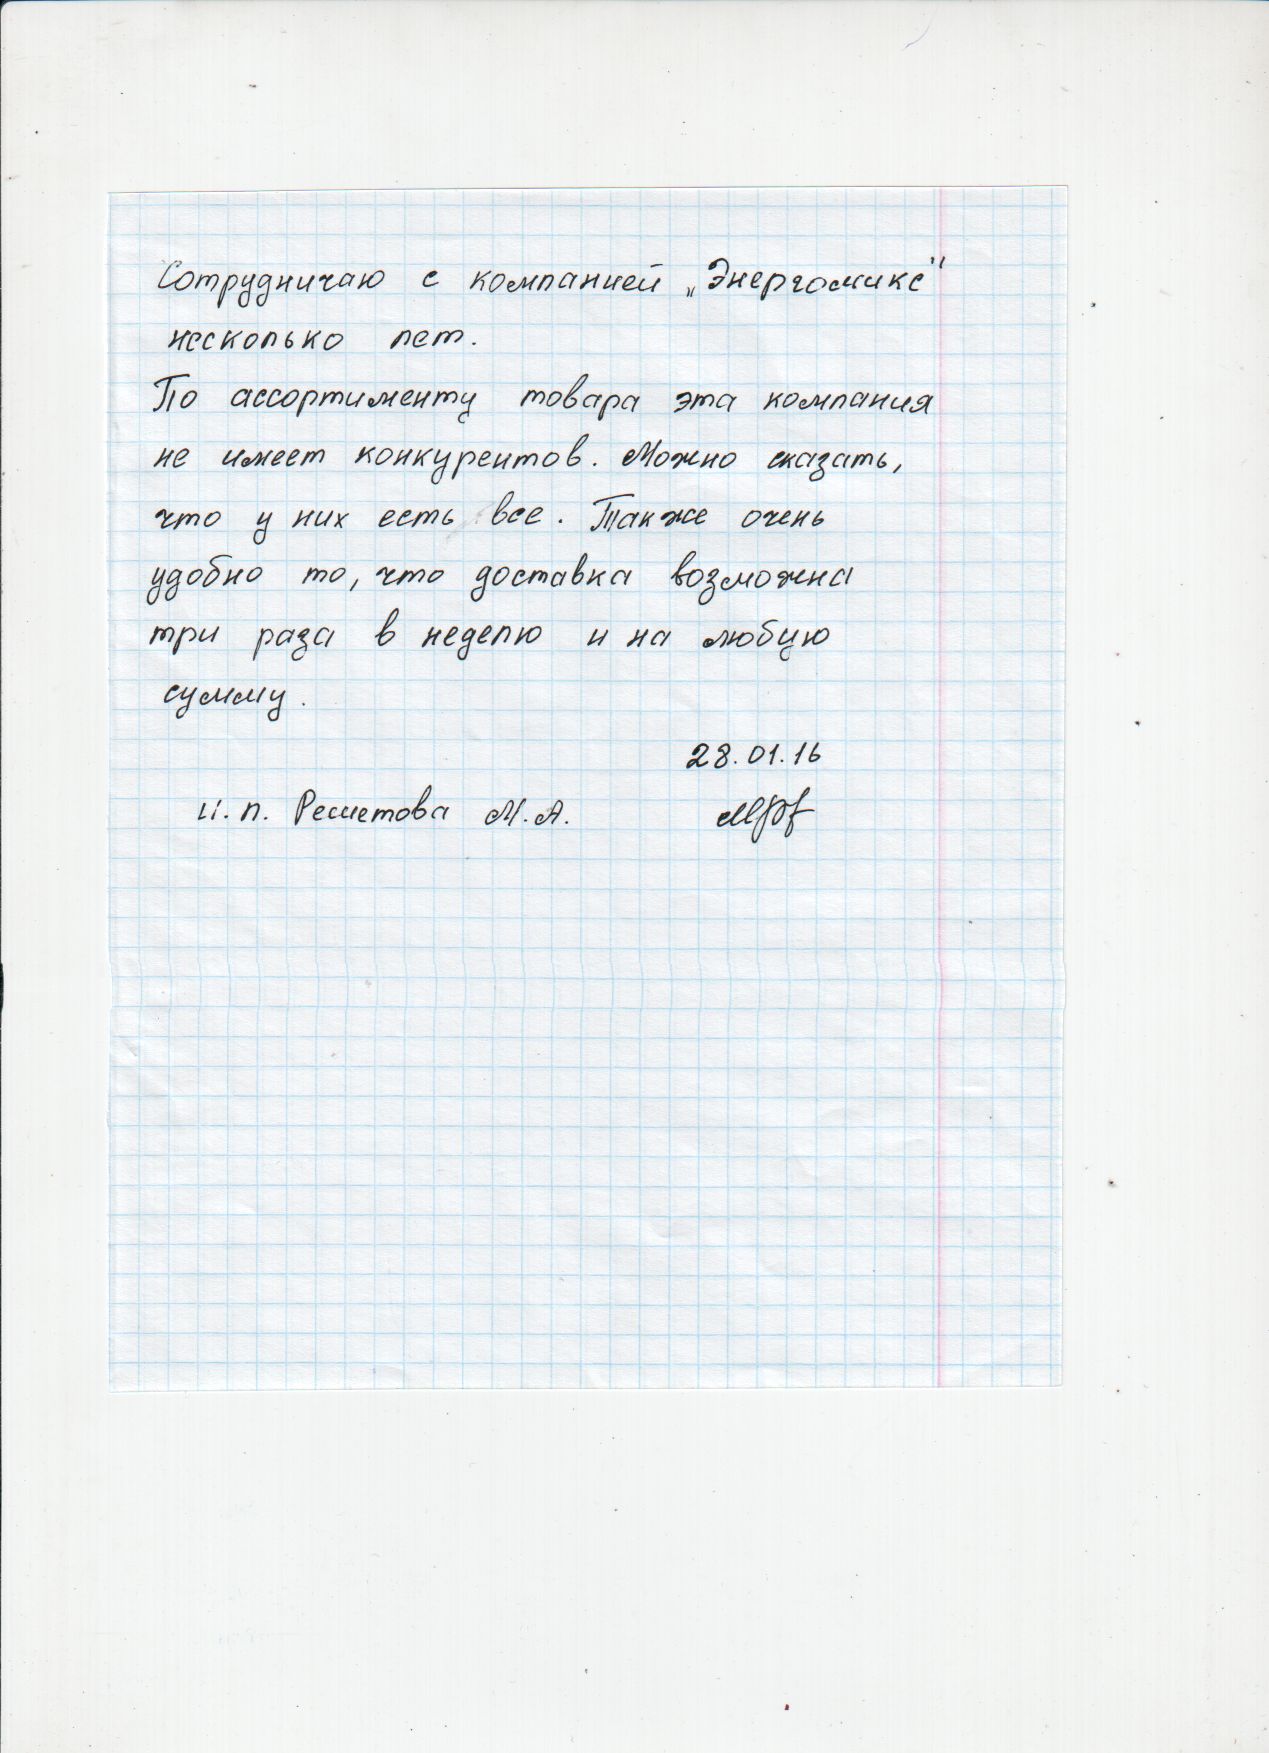 Сотрудничаю с компанией „Энергомикс"
несколько лет.
По ассортименту товара эта компания
не имеет конкурентов. Можно сказать,
что у них есть все. Также очень
удобно то, что доставка возможна
три раза в неделю и на любую
сумму.
28.01.16
И.п. Решетова М.А.